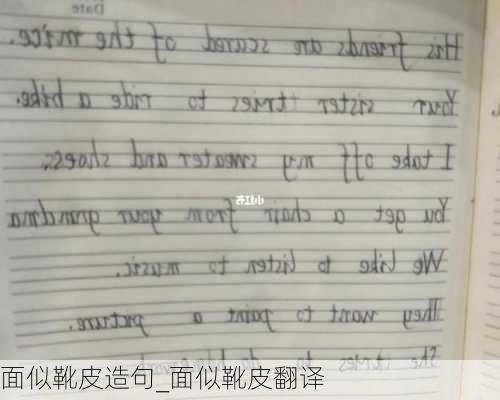 Date
His friends are scared of the mice.
Your sister tries to ride a bike.
I take off my sweater and shoes.
You get a chair from your grandma
We like to listen to music.
They want to paint a picture.
She tries to do
面似靴皮造句_面似靴皮翻译